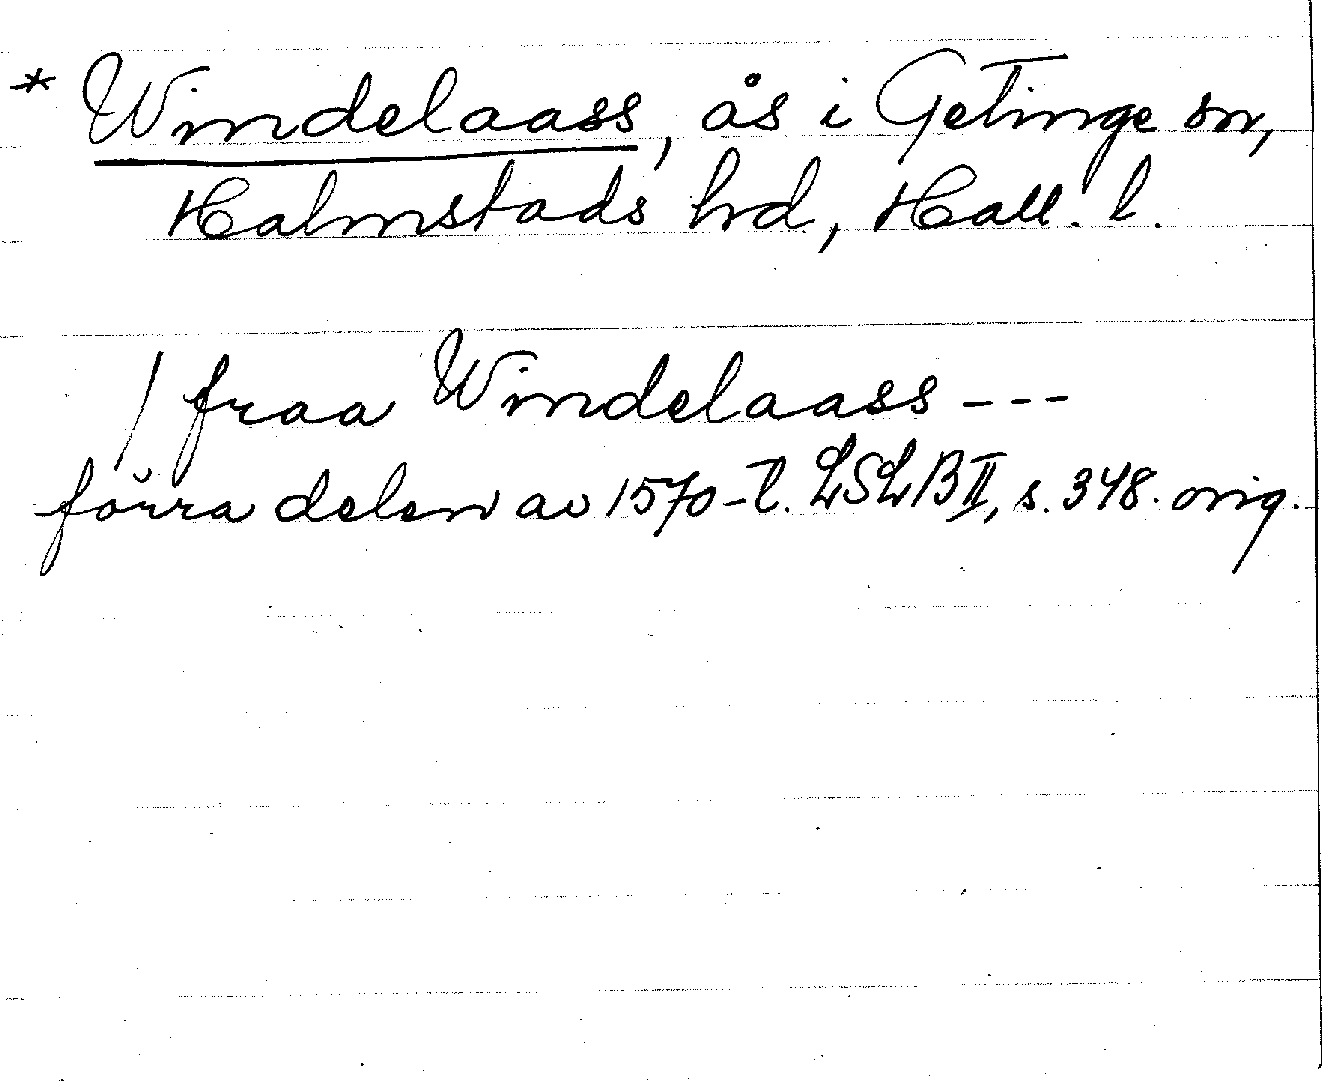 * Windelaass, ås i Getinge sn,
Halmstads hrd, Hall. l.
/ fraa Windelaass ---
förra delen av 1570-t. LSLB II, s. 348. orig.